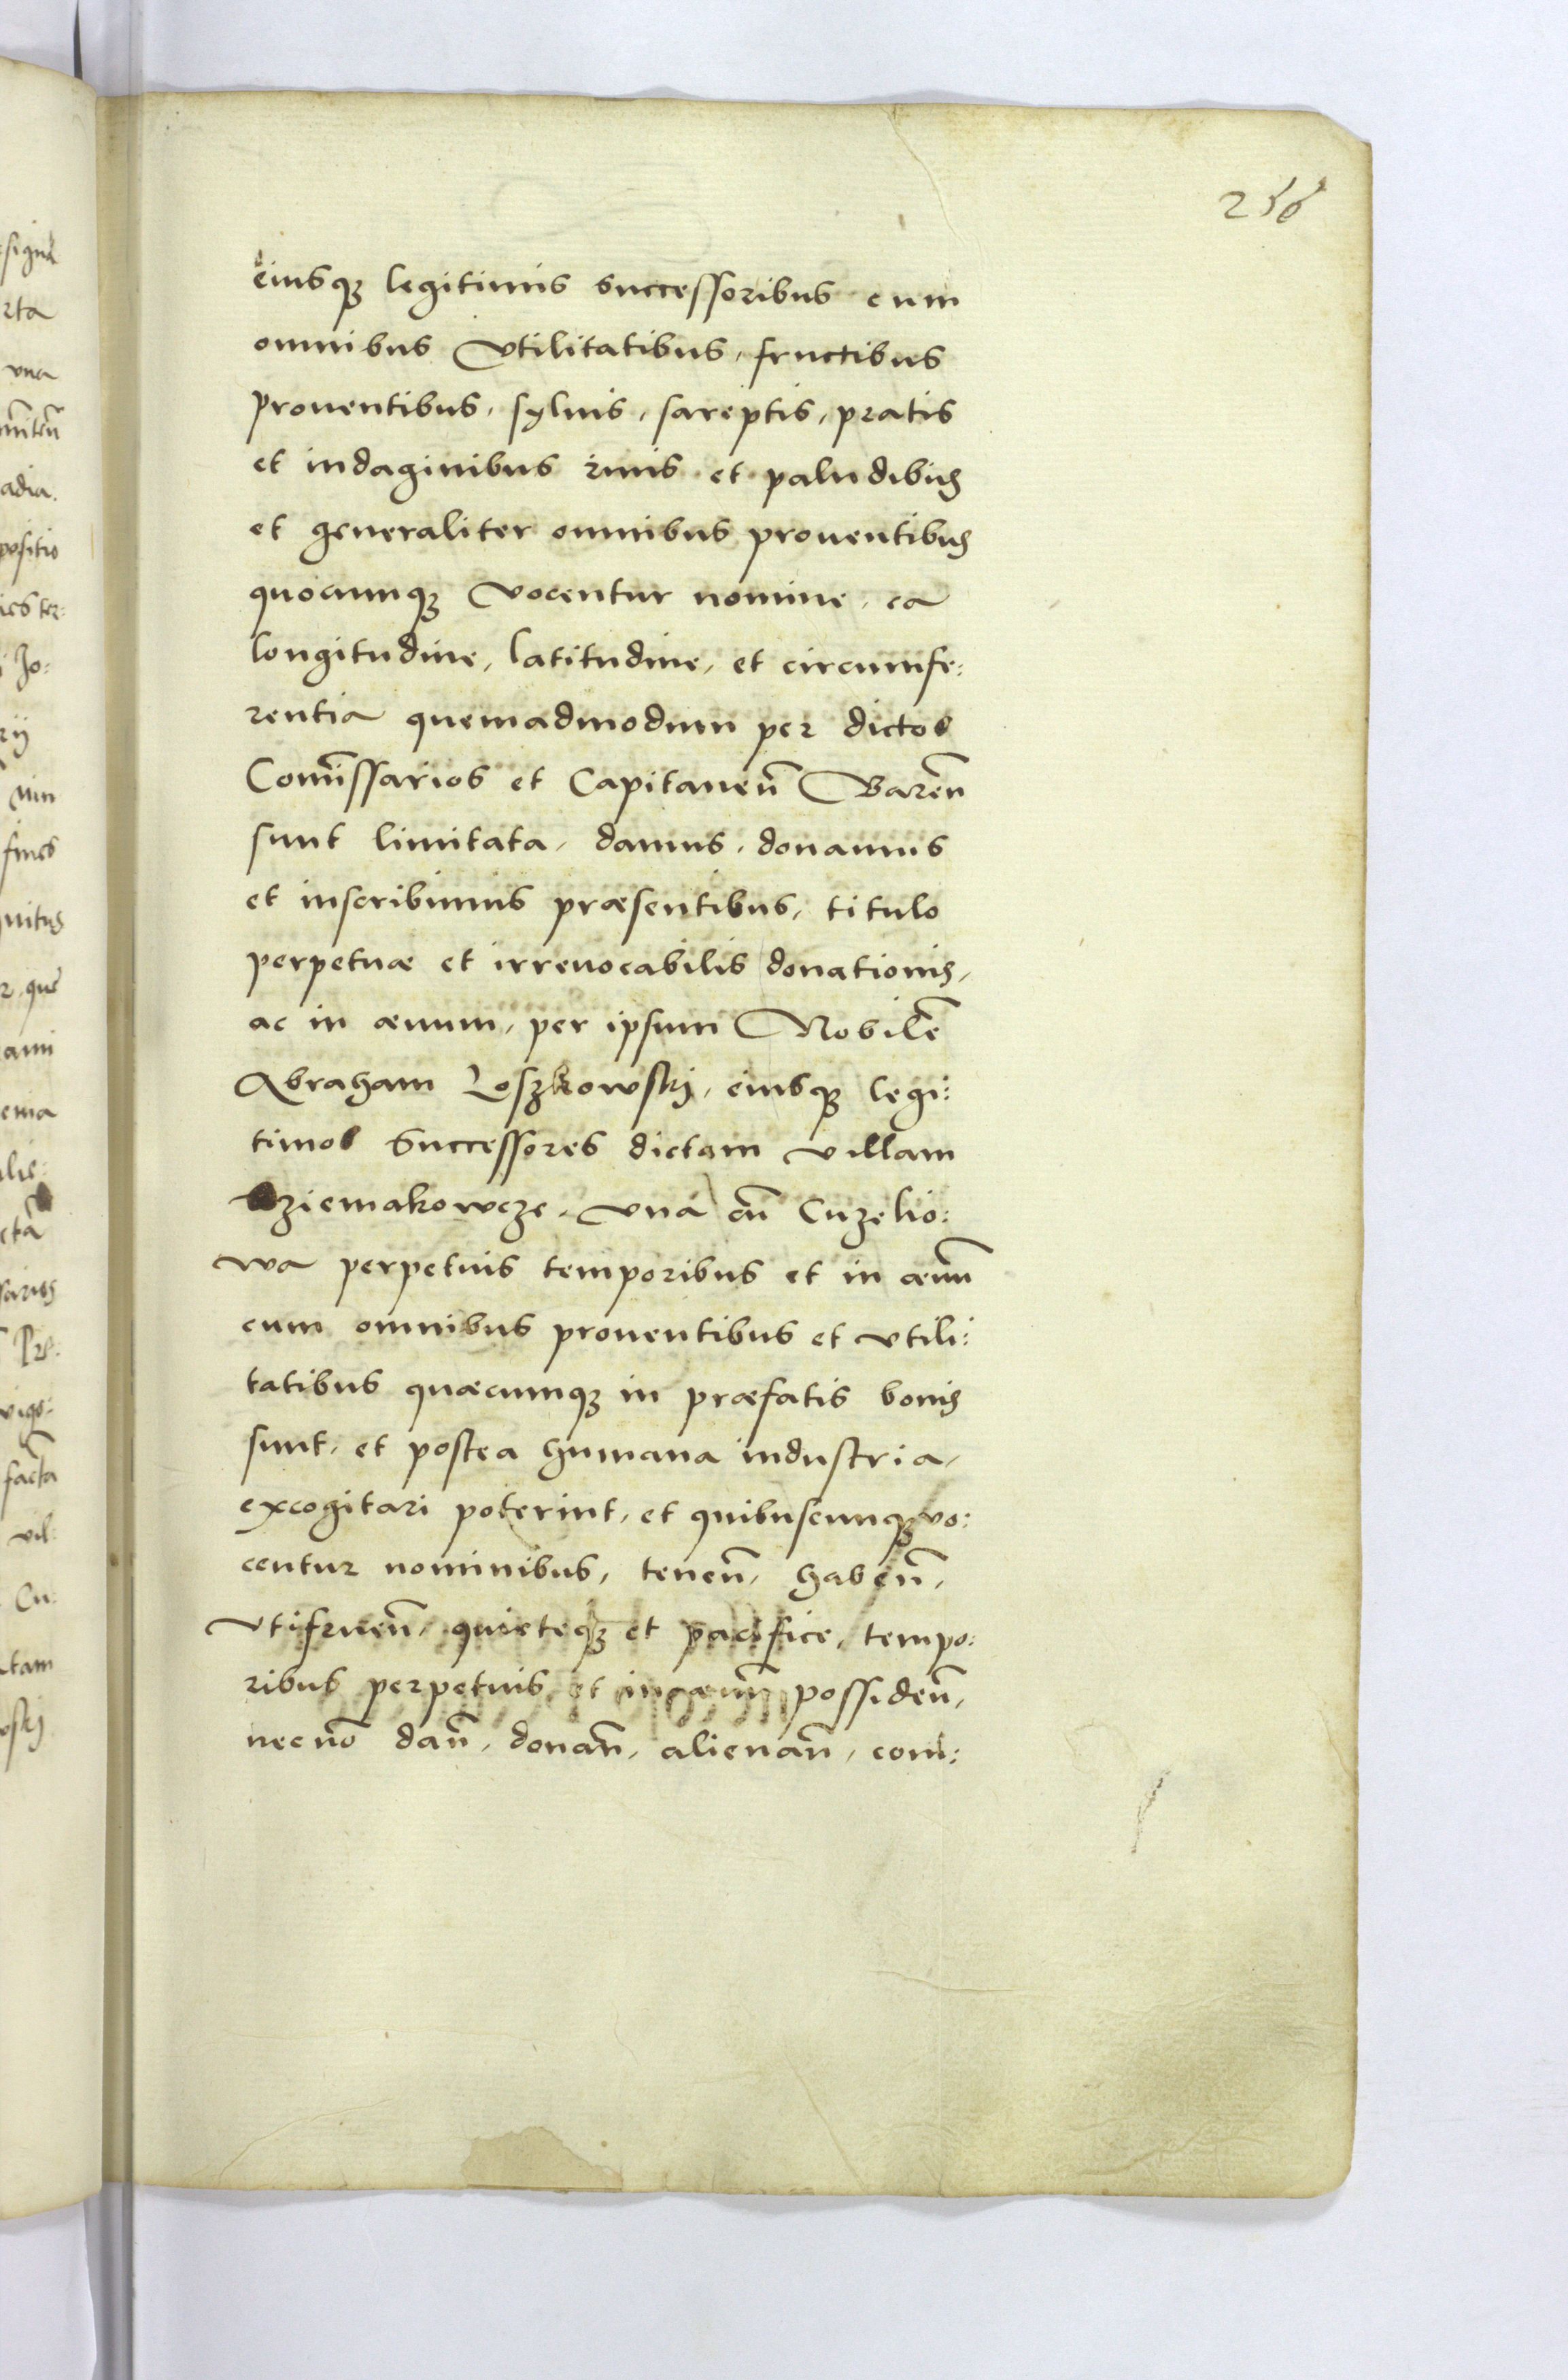 256
eiusq3 legitimis successoribus cum
omnibus vtilitatibus, fructibus
prouentibus, syluis, sareptis, pratis
et indaginibus riuis et paludibus
et generaliter omnibus prouentibus
quocumq3 vocentur nomine, ea
longitudine, latitudine, et circumfe:
rentia quemadmodum per dictos
Com̄issarios et Capitaneū Bareñ
sunt limitata, damus, donamus
et inscribimus præsentibus, titulo
perpetuæ et irreuocabilis donationis,
ac in æuum, per ipsum Nobilē
Abraham Loszkowskij, eiusq3 legi:
timos Successores dictam villam
Dziemakowcze, vna cū Cuzelio:
wa perpetuis temporibus et in æuū
cum omnibus prouentibus et vtili:
tatibus quæcumq3 in præfatis bonis
sunt, et postea humana industria,
excogitari poterint, et quibuscumq3 vo:
centur nominibus, teneñ, habeñ,
vtifrueñ, quieteq3 et pacifice, tempo:
ribus perpetuis et in æuū possideñ,
nec nō dañ, donañ, alienañ, com: